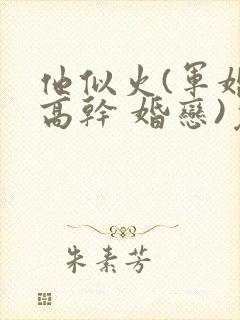 他似火(軍婚
高幹 婚戀)
朱素芳